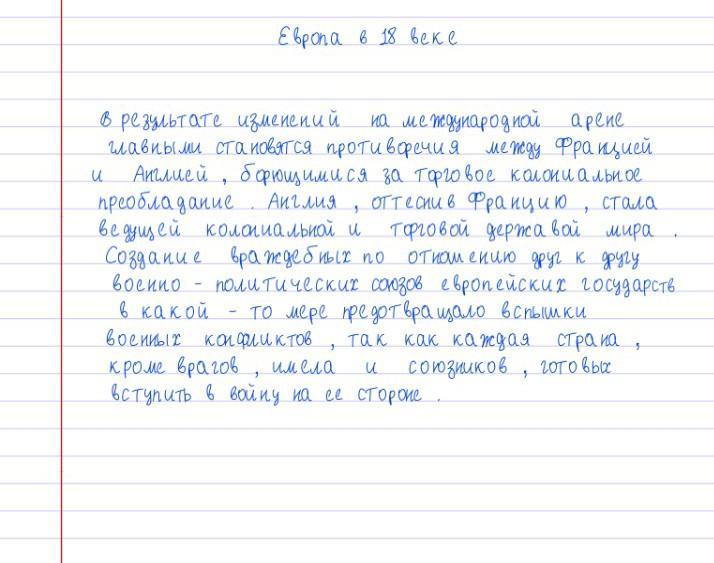 Европа в 18 веке
В результате изменений на международной арене
главными становятся противоречия между Францией
и Англией , борющимися за торговое колониальное
преобладание . Англия , оттеснив Францию , стала
ведущей колониальной и торговой державой мира .
Создание враждебных по отношению друг к другу
военно - политических союзов европейских государств
в какой - то мере предотвращало вспышки
военных конфликтов , так как каждая страна ,
кроме врагов , имела и союзников , готовых
вступить в войну на ее стороне .